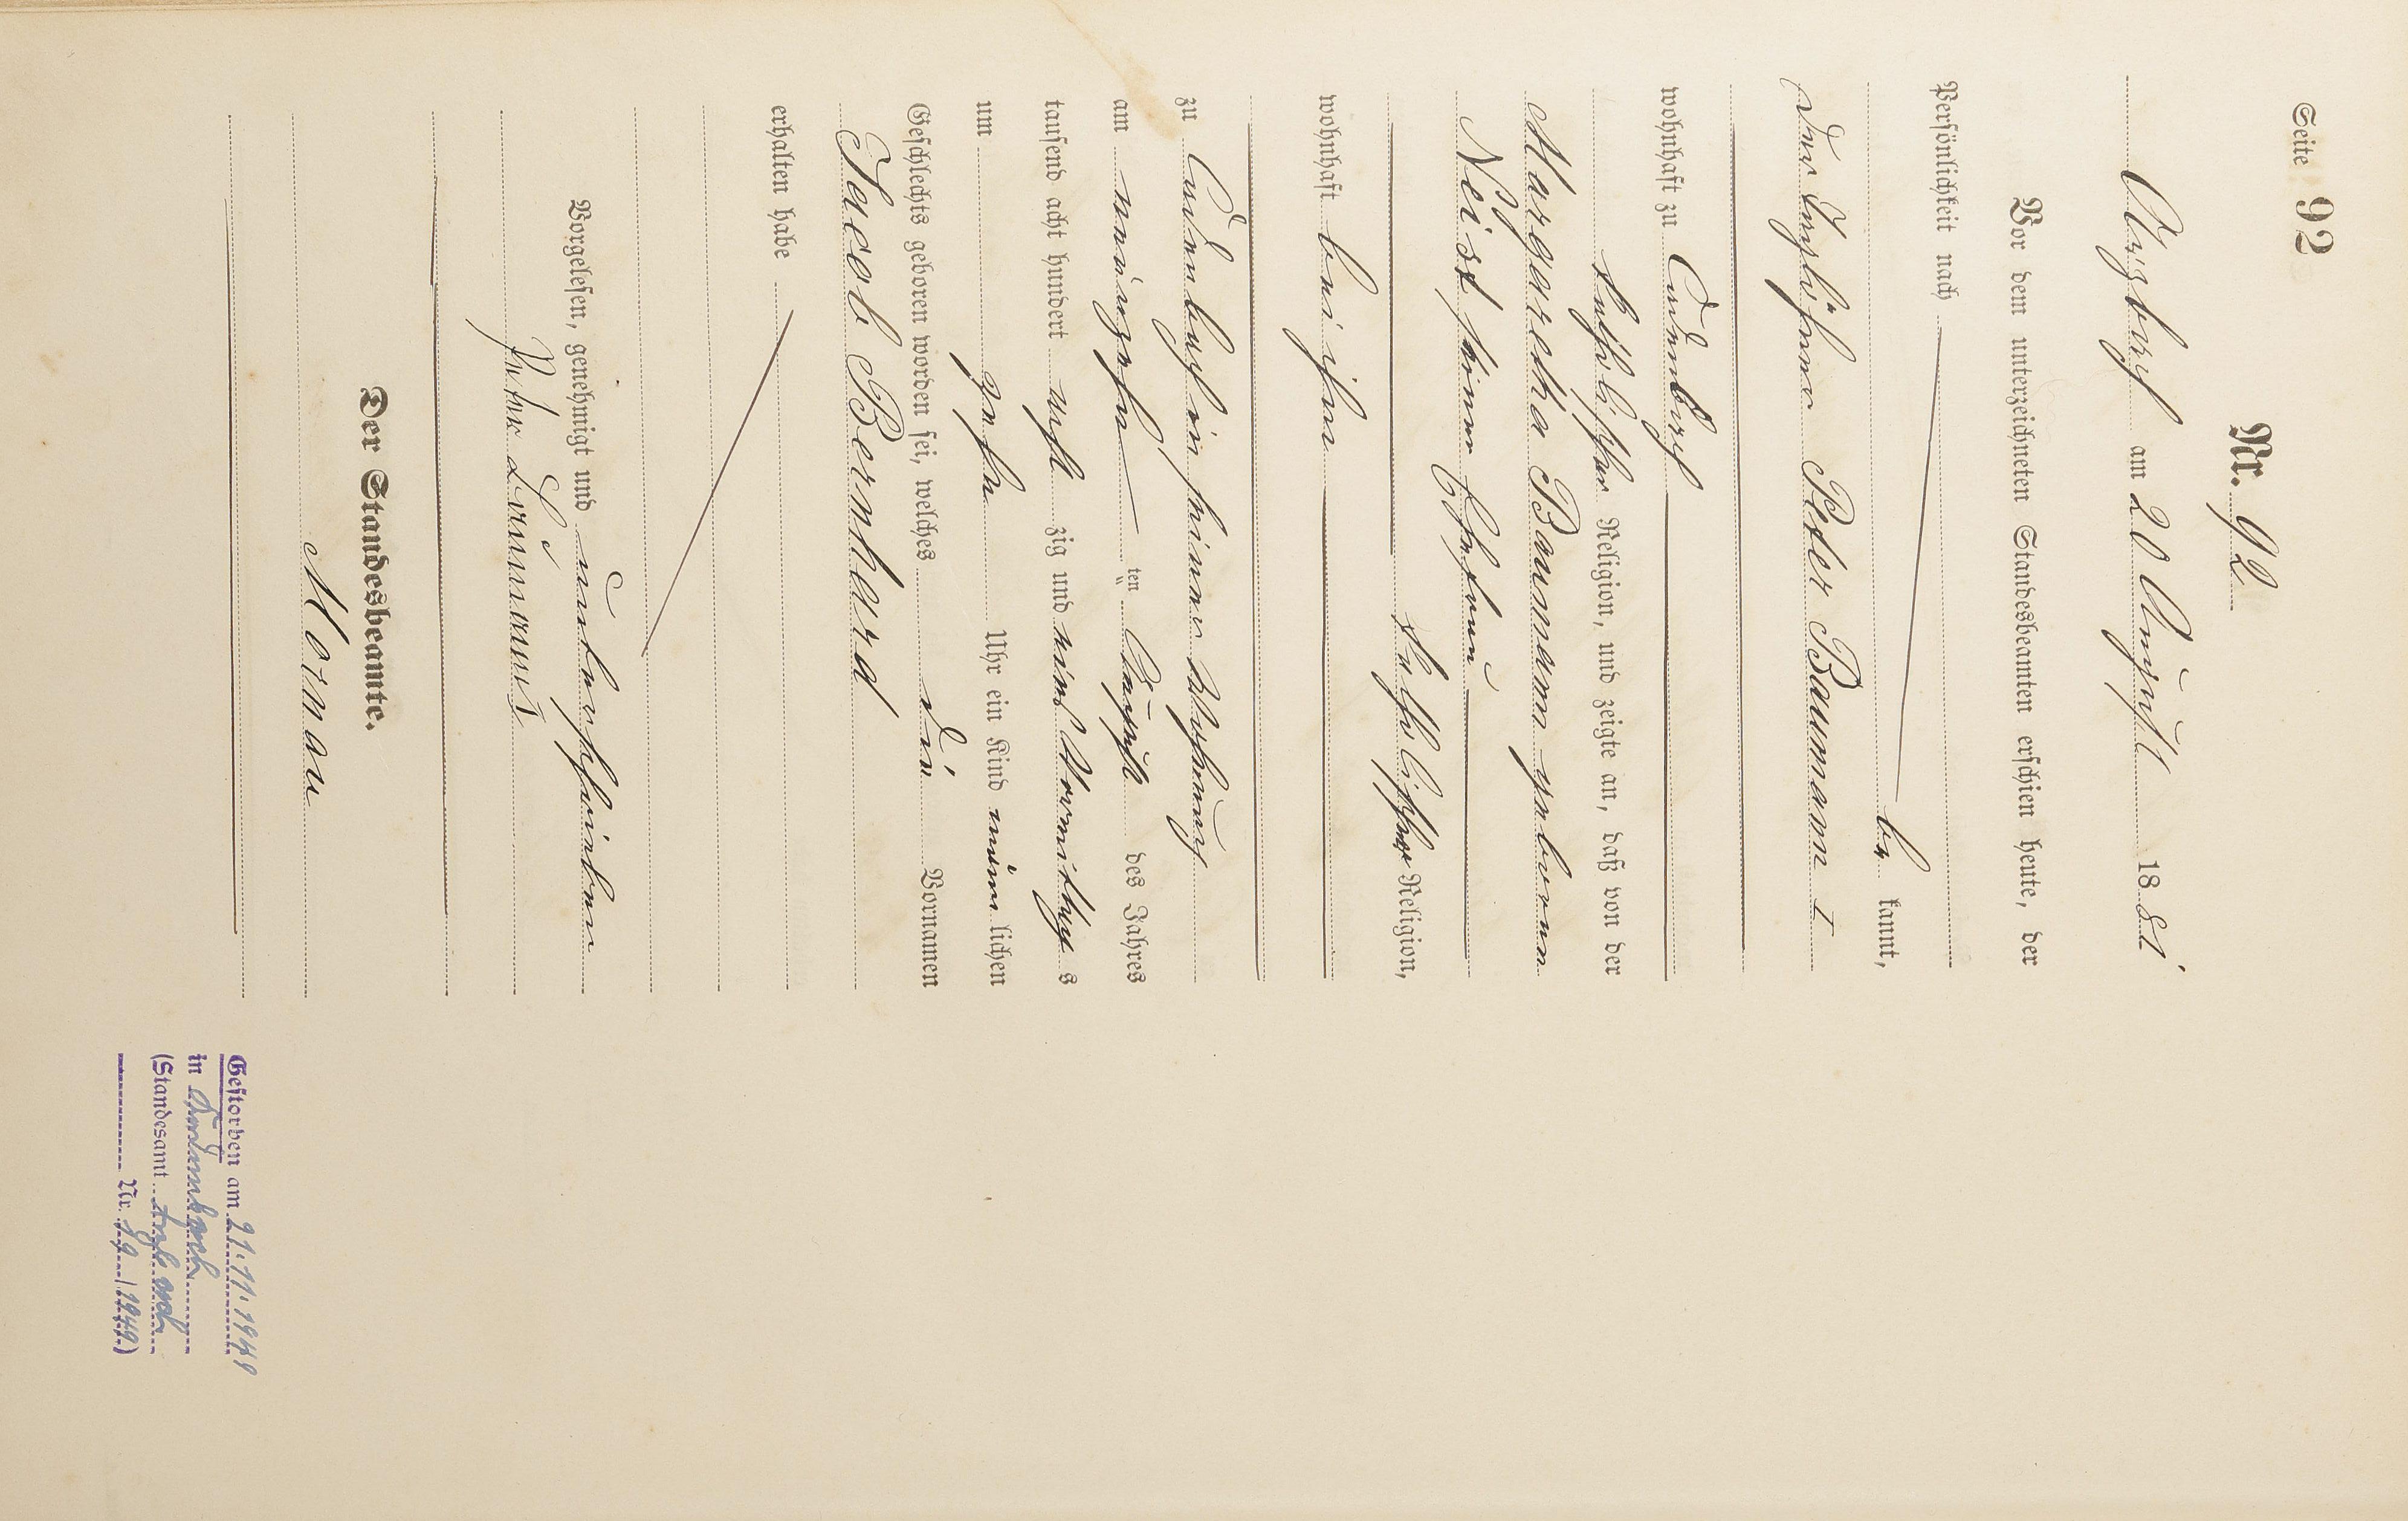 Seite 92
Nr. 92
Arzbach am 20 August 1881
Vor dem unterzeichneten Standesbeamten erschien heute, der
Persönlichkeit nach
be kannt,
der Taglöhner Peter Baumann I
wohnhaft zu Cadenbach
katholischer Religion, und zeigte an, daß von der
Margaretha Baumann geborenen
Neist seiner Ehefrau
katholischer Religion,
wohnhaft bei ihm
zu Cadenbach in seiner Wohnung
am neunzehn ten August des Jahres
tausend acht hundert acht zig und eins Vormittag s
um zehn Uhr ein Kind männ lichen
Geschlechts geboren worden sei, welches die Vornamen
Jacob Bernhard
erhalten habe
Vorgelesen, genehmigt und unterschrieben
Peter Baumann I
Der Standesbeamte.
Mornau
Gestorben am 21.11.1949
in Kadenbach
(Standesamt Arzbach
Nr. 19 / 1949)